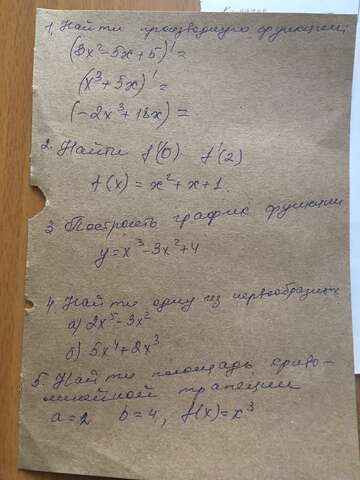 1. Найти производную функции:
(3x²-5x+5)'=
(x³+5x)'=
(-2x³+18x)=
2. Найти f'(0) f'(2)
f(x)=x²+x+1.
3. Построить график функции
y=x³-3x²+4
4. Найти одну из первообразных
а) 2x⁵-3x²
б) 5x⁴+2x³
5. Найти площадь криво-
линейной трапеции
a=2 b=4, f(x)=x³